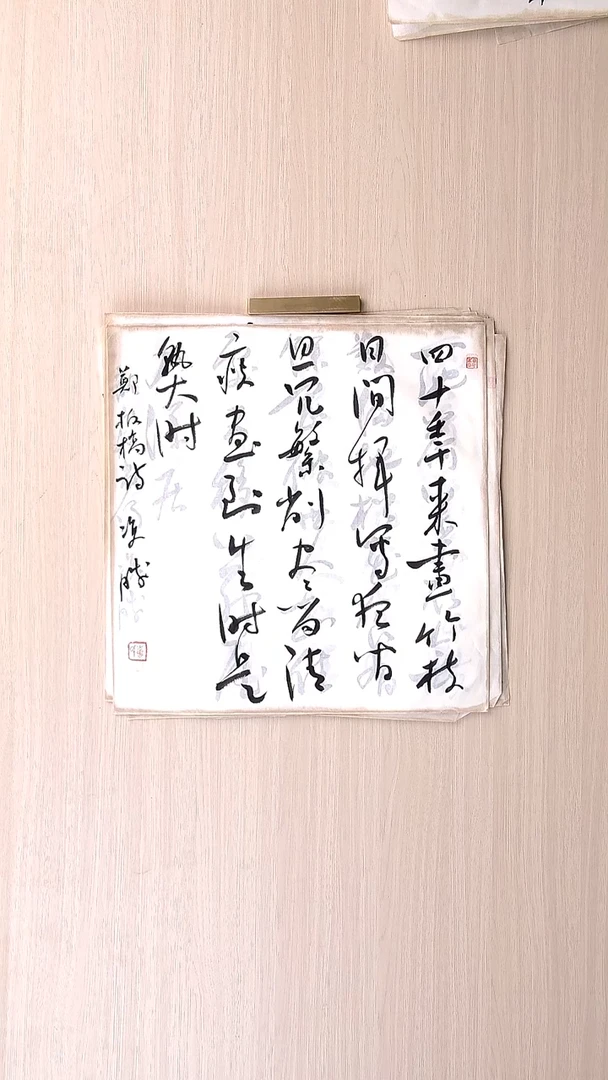 四十年来畫竹枝
日間揮寫夜间
思冗繁削尽留清
瘦画到生时是
熟时
鄭板橋诗